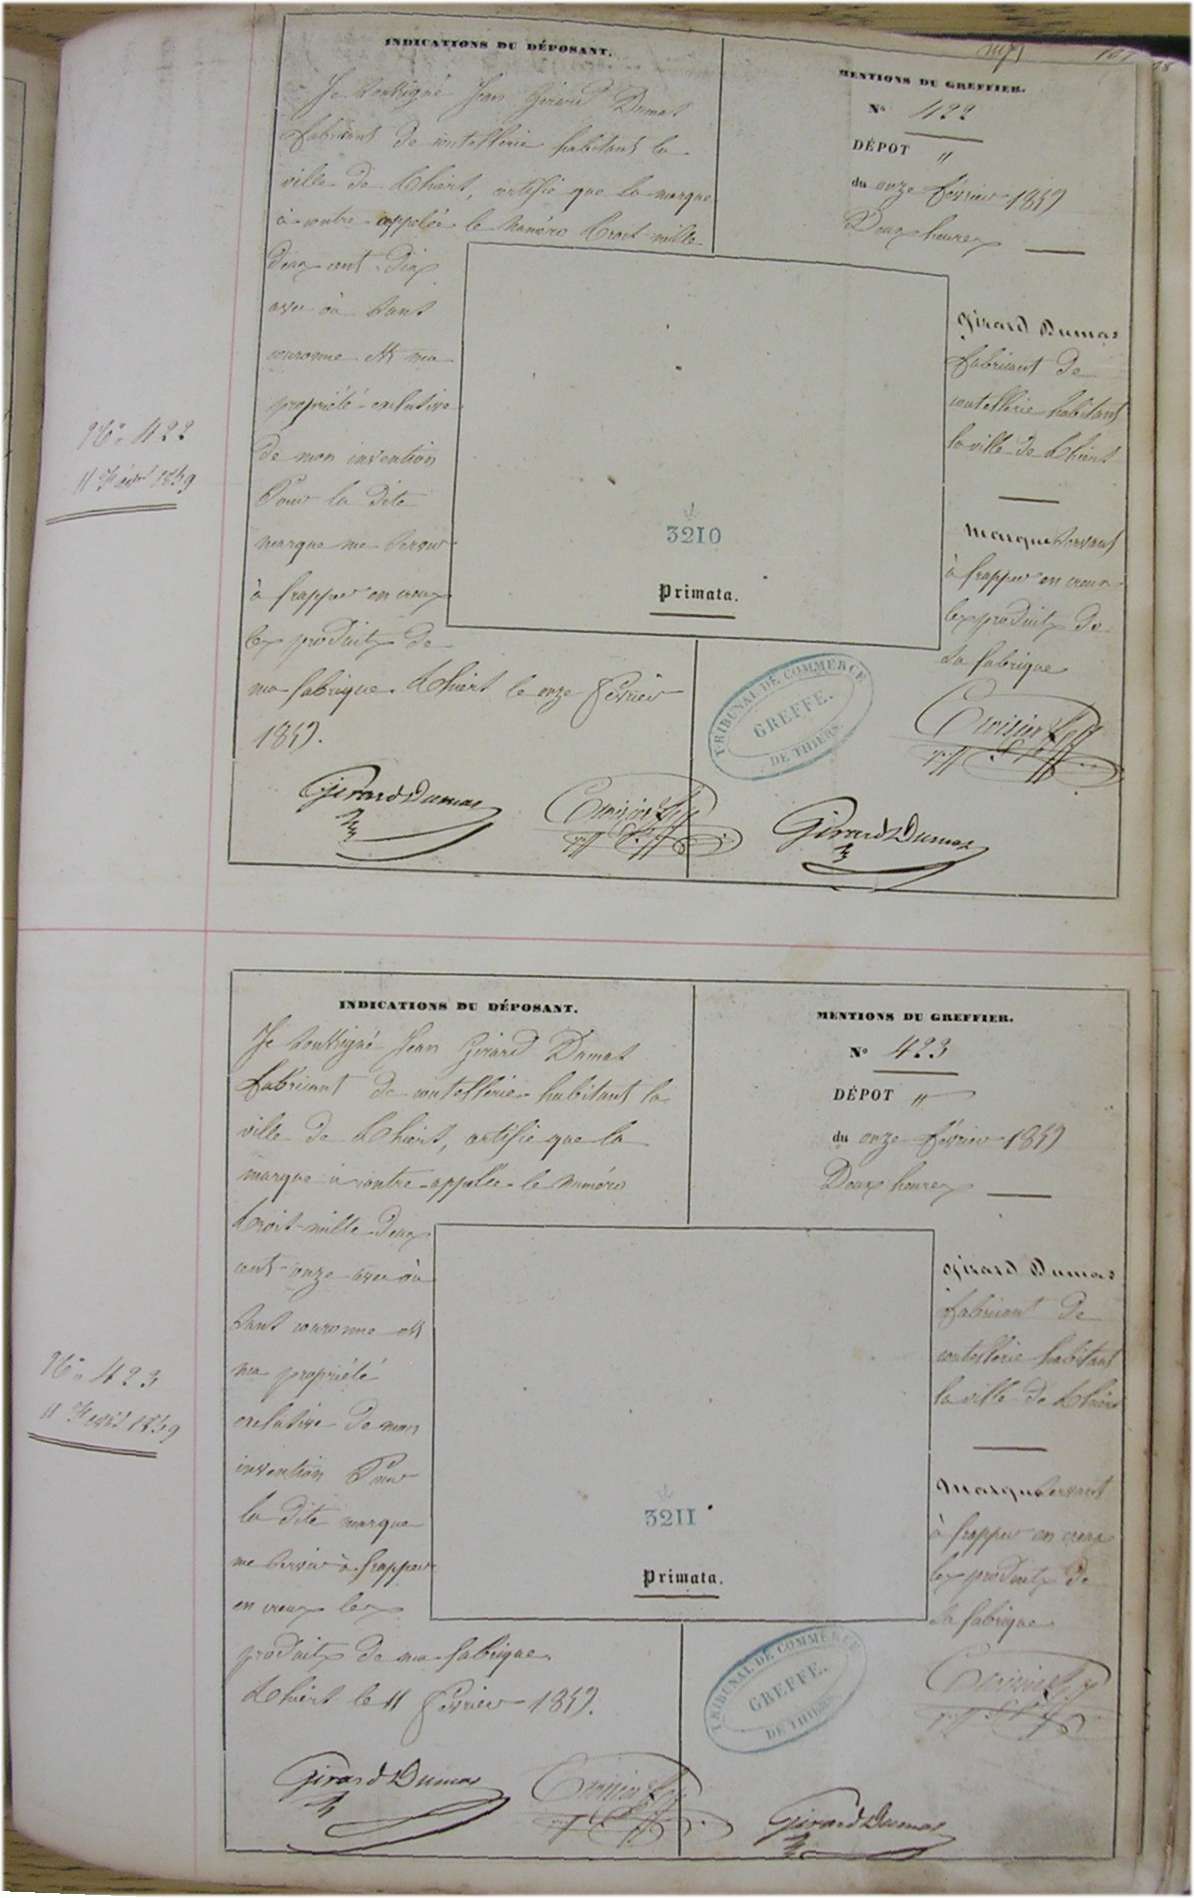 INDICATIONS DU DÉPOSANT.
Je soussigné Jean Girard Dumas
fabricant de coutellerie habitant la
ville de Thiers, certifie que la marque
ci-contre appelée le Numéro trois mille
deux cent dix
avec
couronne est ma
propriété exclusive
de mon invention
Pour la dite
marque me servir
à frapper en creux
les produits de
ma fabrique. Thiers le onze février
1859.
Girard Dumas
Girard Dumas
MENTIONS DU GREFFIER.
N° 422
DÉPOT "
du onze février 1859
Deux heures
Girard Dumas
fabricant de
coutellerie habitant
la ville de Thiers
Marque servant
à frapper en creux
les produits de
sa fabrique
3210
Primata.
TRIBUNAL DE COMMERCE
GREFFE.
DE THIERS.
N° 422
11 Févr 1859
INDICATIONS DU DÉPOSANT.
Je soussigné Jean Girard Dumas
fabricant de coutellerie habitant la
ville de Thiers, certifie que la
marque ci contre appelée le Numéro
trois mille deux
cent onze avec
couronne est
ma propriété
exclusive de mon
invention Pour
la dite marque
me servir à frapper
en creux les
produits de ma fabrique
Thiers le 11 février 1859.
Girard Dumas
Girard Dumas
MENTIONS DU GREFFIER.
N° 423
DÉPOT "
du onze février 1859
Deux heures
Girard Dumas
fabricant de
coutellerie habitant
la ville de Thiers
Marque servant
à frapper en creux
les produits de
sa fabrique
3211
Primata.
TRIBUNAL DE COMMERCE
GREFFE.
DE THIERS.
N° 423
11 Févr 1859